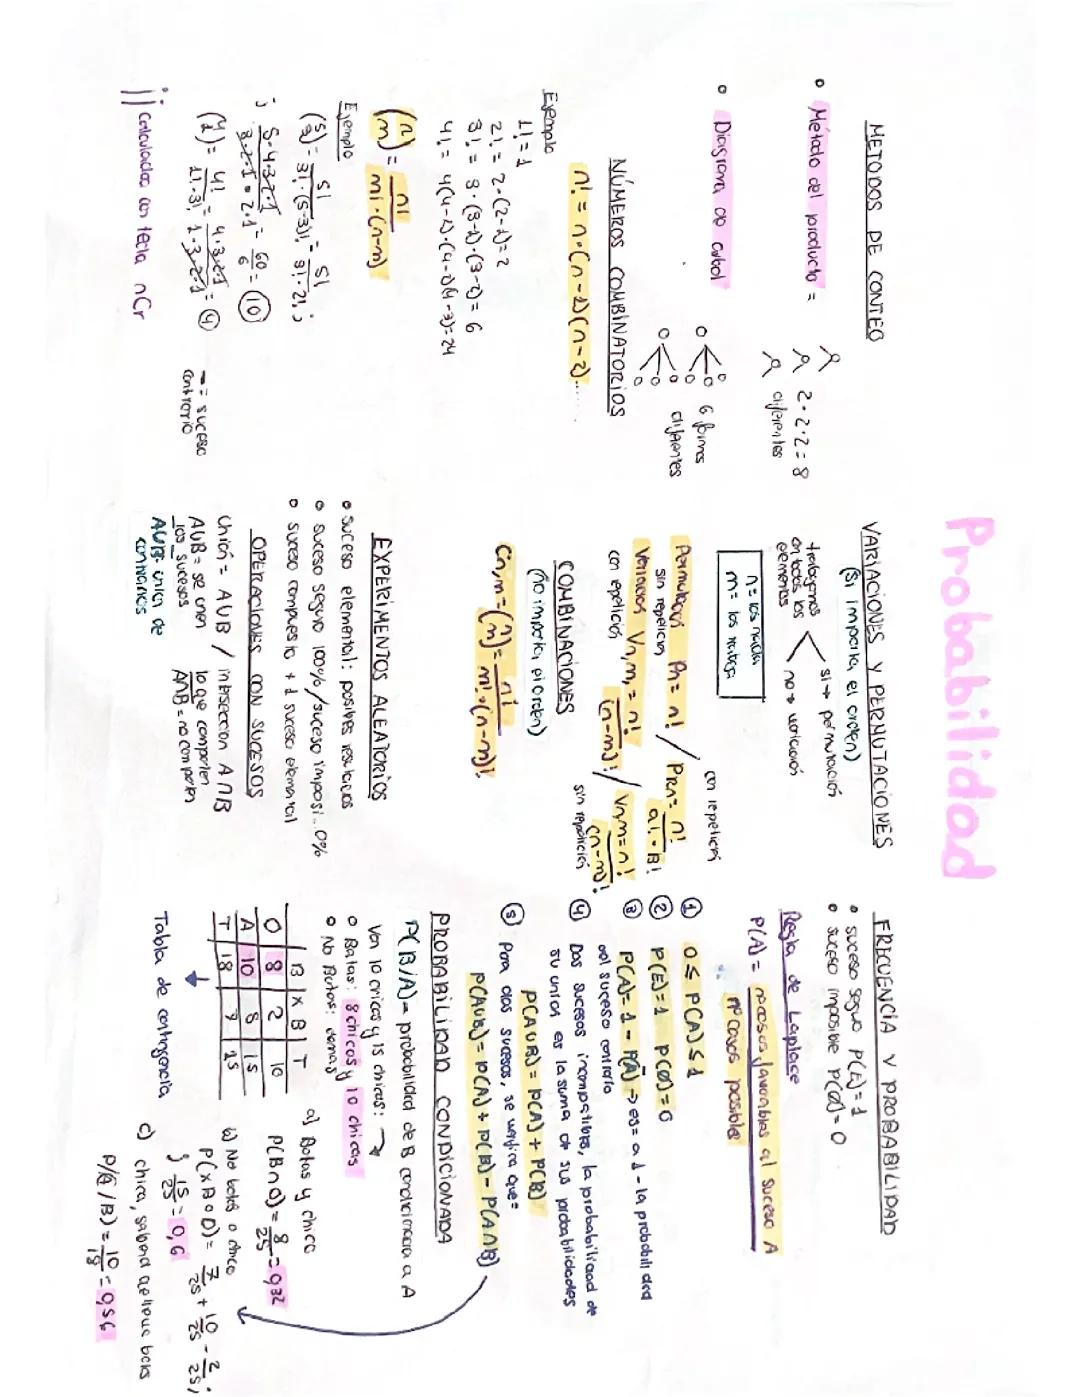 Probabilidad
METODOS DE CONTEO
• Método del producto =
2·2·2=8
diferentes
• Diagrama de arbol
6 formas
diferentes
NÚMEROS COMBINATORIOS
n! = n·(n-1)(n-2)......
Ejemplo
1! = 1
2! = 2·(2-1)=2
3! = 3·(3-1)·(3-2)= 6
4! = 4(4-1)·(4-2)(4-3)=24
(n/m) = n! / m!·(n-m)
Ejemplo
(5/3) = 5! / 3!·(5-3)! = 5! / 3!·2! ;
; 5·4·3·2·1 / 3·2·1·2·1 = 60/6 = 10
(4/1) = 4! / 1!·3! = 4·3·2·1 / 1·3·2·1 = 4
¡¡ Calculadora con tecla nCr
— = suceso
contrario
VARIACIONES Y PERMUTACIONES
(Si importa el orden)
trabajamos
con todos los
elementos
si → permutación
no → variación
n = los
m = los
con repetición
Permutación Pn = n! / PRn = n! / a!·B!
sin repetición
Variación Vn,m = n! / (n-m)! / Vn,m = n! / (n-m)!
con repetición
sin repetición
COMBINACIONES
(no importa el orden)
Cn,m = (n/m) = n! / m!·(n-m)!
EXPERIMENTOS ALEATORIOS
• suceso elemental: posibles resultados
• suceso seguro 100% / suceso imposi.. 0%
• suceso compuesto + 1 suceso elemental
OPERACIONES CON SUCESOS
Unión = AUB / intersección A∩B
AUB = se unen
los sucesos
lo que comparten
A∩B = no comparten
AUB = unión de
contrarios
FRECUENCIA Y PROBABILIDAD
• suceso seguro P(E)=1
• suceso imposible P(Ø)=0
Regla de Laplace
P(A) = nº casos favorables al suceso A
nº casos posibles
① 0 ≤ P(A) ≤ 1
② P(E)=1 P(Ø)=0
③ P(A)= 1 - P(Ā) → es = a 1 - la probabilidad
del suceso contrario
④ Dos sucesos incompatibles, la probabilidad de
su unión es la suma de sus probabilidades
P(AUB) = P(A) + P(B)
⑤ Para dos sucesos, se verifica que:
P(AUB) = P(A) + P(B) - P(A∩B)
PROBABILIDAD CONDICIONADA
P(B/A) = probabilidad de B condicionada a A
Van 10 chicos y 15 chicas: →
• Botas: 8 chicos y 10 chicas
• No Botas: demás
B XB T
O 8 2 10
A 10 5 15
T 18 7 25
Tabla de contingencia
a) Botas y chico
P(B∩O)= 8/25 = 0,32
b) No botas o chico
P(XB o O)= 7/25 + 10/25 - 2/25 ;
; 15/25 = 0,6
c) chica, sabiendo que lleve botas
P(A/B) = 10/18 = 0,56